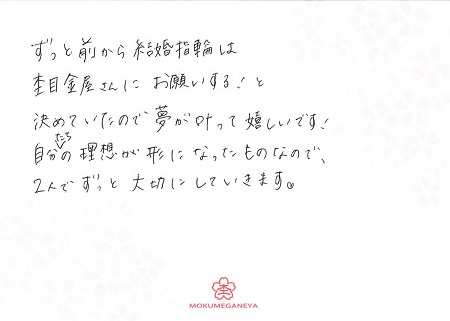 ずっと前から結婚指輪は
杢目金屋さんにお願いする！と
決めていたので夢が叶って嬉しいです！
自分たちの理想が形になったものなので、
2人でずっと大切にしていきます。
MOKUMEGANEYA